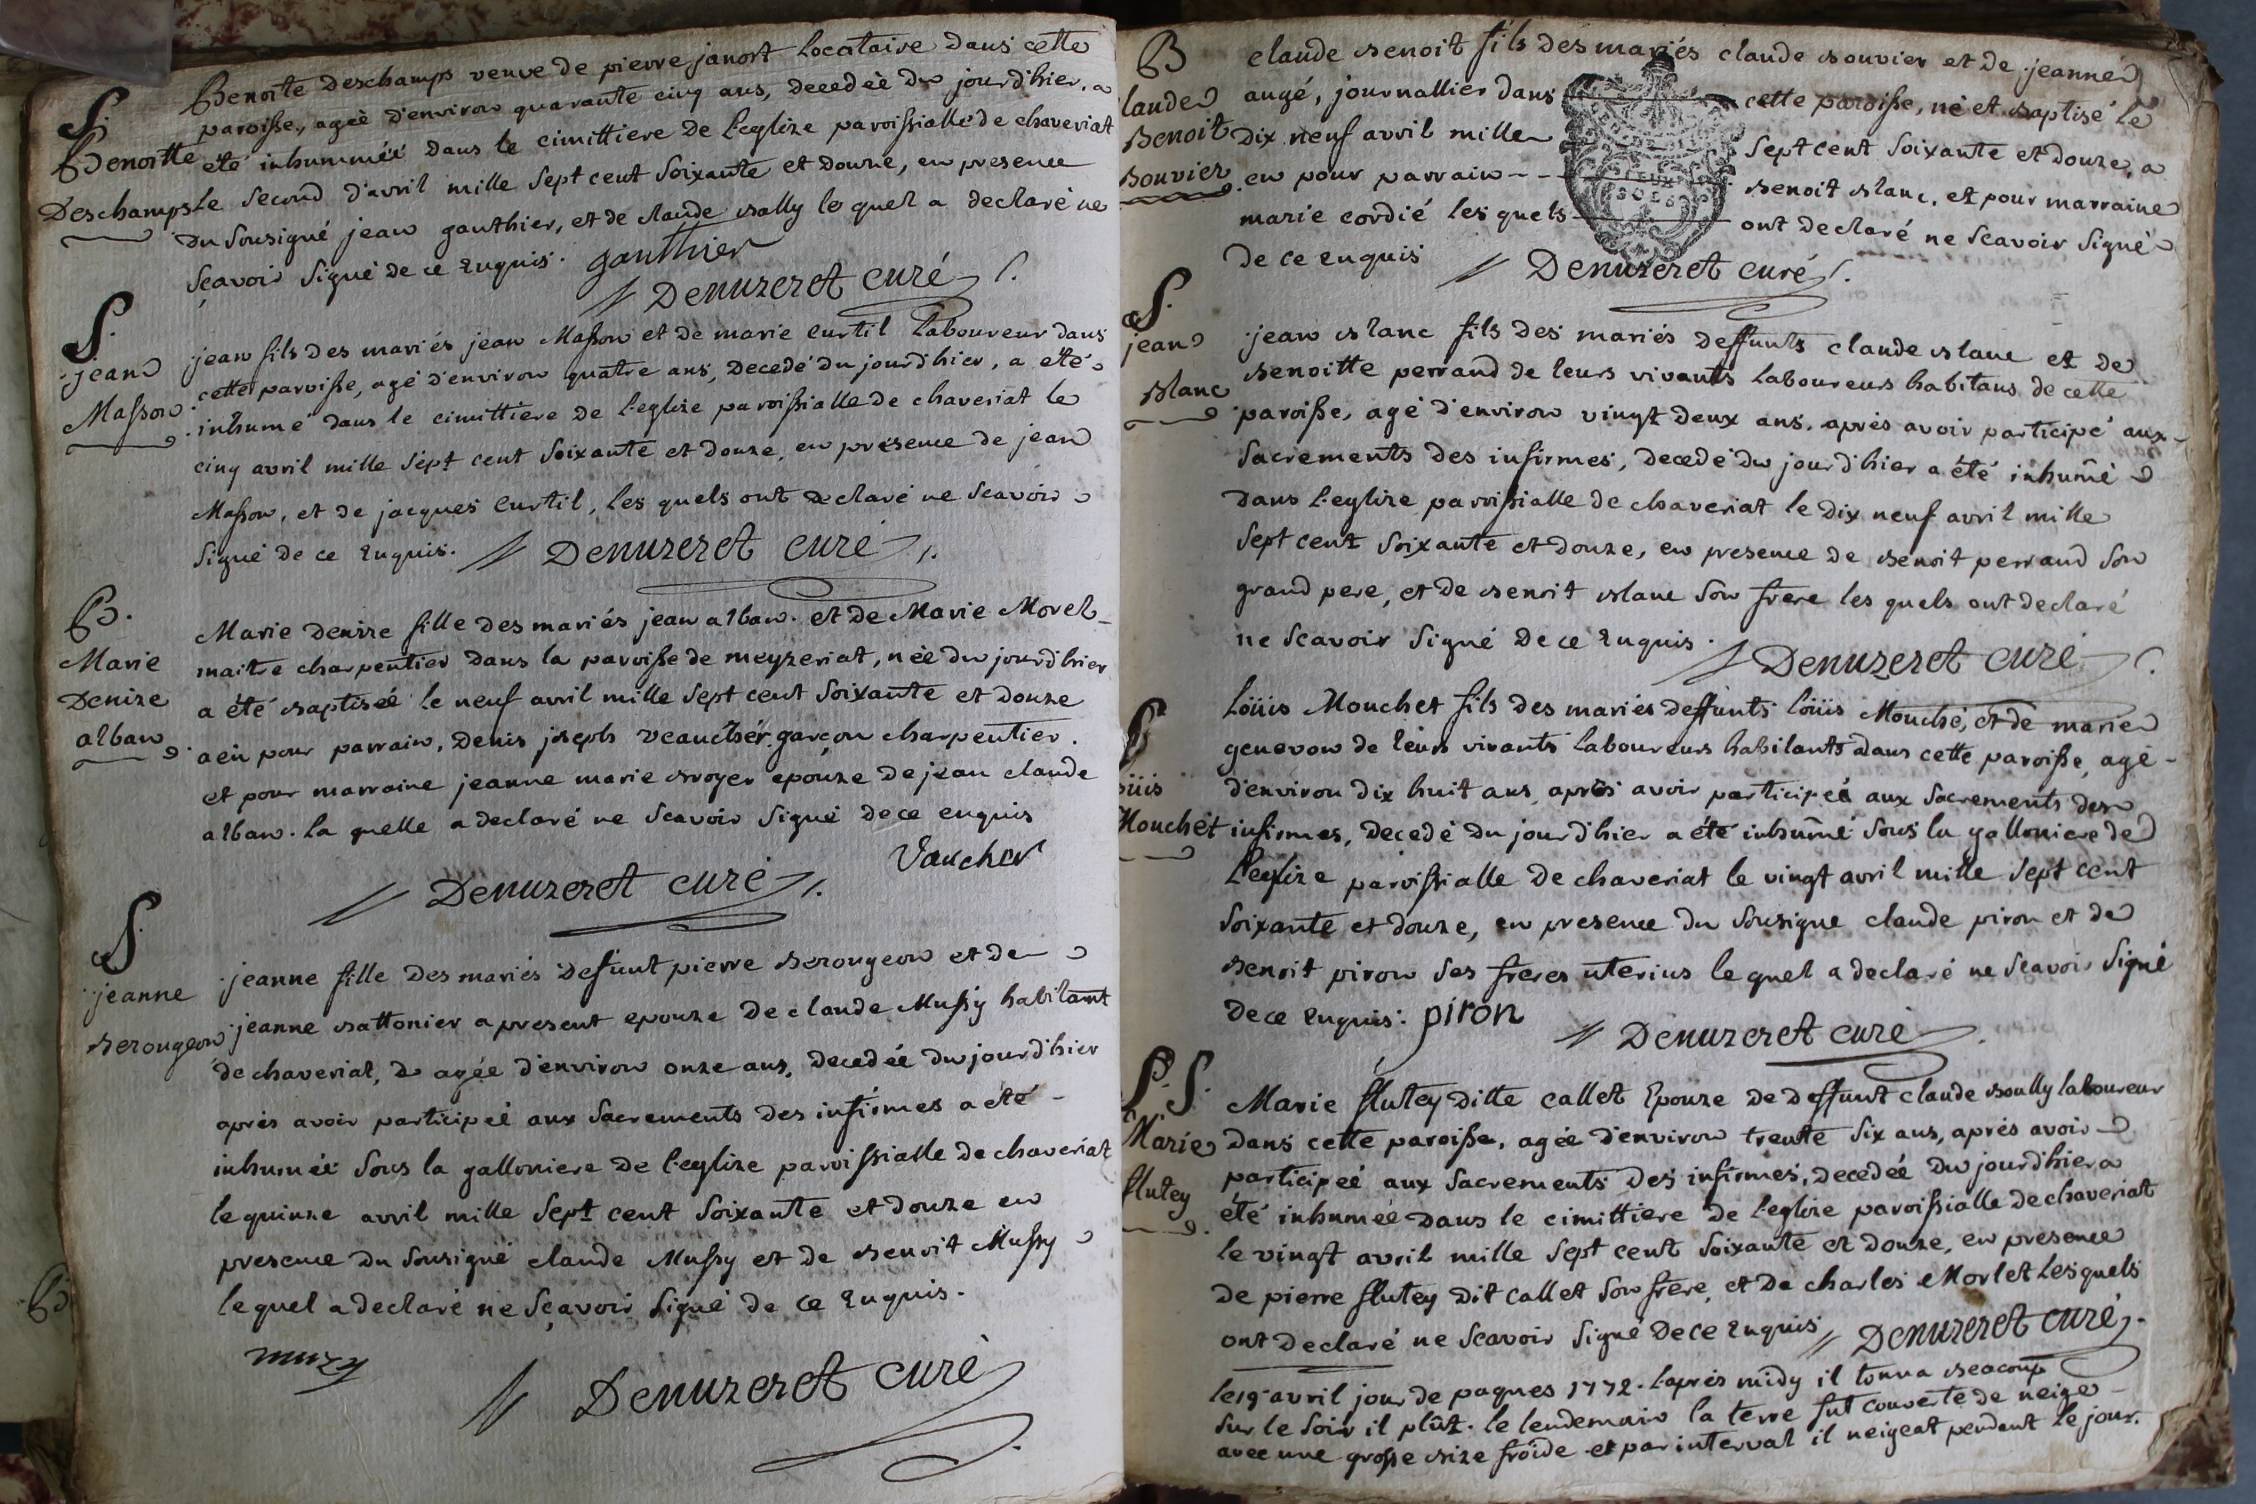 S.
Benoitte
Deschamps
Benoite Deschamps veuve de pierre janort Locataire dans cette
paroisse, ageé d'environ quarante cinq ans, decedeé du jourd'hier, a
été inhummeé dans le cimittiere de l'eglize paroissialle de chaveriat
Le second d'avril mille sept cent soixante et douze, en presence
du sousigné jean gauthier, et de claude bally le quel a declaré ne
sçavoir signé de ce enquis. gauthier
Denuzeret curé
S.
jean
Masson
jean fils des mariés jean Masson et de marie curtil Laboureur dans
cette paroisse, agé d'environ quatre ans, decedé du jourd'hier, a été
inhumé dans le cimittiere de l'eglize paroissialle de chaveriat le
cinq avril mille sept cent soixante et douze, en presence de jean
Masson, et de jacques curtil, les quels ont declaré ne scavoir
signé de ce enquis. Denuzeret curé
B.
Marie
Denize
alban
Marie Denize fille des mariés jean alban. et de Marie Morel
maitre charpentier dans la paroisse de meyzeriat, neé du jourd'hier
a été baptiseé le neuf avril mille sept cent soixante et douze
a eü pour parrain, Denis joseph veaucher garçon charpentier.
et pour marraine jeanne marie broyer epouze de jean claude
alban. la quelle a declaré ne scavoir signé de ce enquis
Vaucher
Denuzeret curé
S.
jeanne
berougeon
jeanne fille des mariés defunt pierre berougeon et de
jeanne battonier a present epouze de claude Mussy habitant
de chaveriat, ageé d'environ onze ans, decedeé du jourd'hier
aprés avoir participeé aux sacrements des infirmes a eté
inhumeé sous la galloniere de l'eglize paroissialle de chaveriat
le quinze avril mille sept cent soixante et douze en
presence du sousigné claude Mussy et de benoit Mussy
lequel a declaré ne sçavoir signé de ce enquis.
muzy
Denuzeret curé
B
laude
Benoit
bouvier
claude benoit fils des mariés claude bouvier et de jeanne
augé, journallier dans cette paroisse, né et baptisé le
dix neuf avril mille sept cent soixante et douze, a
eu pour parrain benoit blanc, et pour marraine
marie cordié les quels ont declaré ne scavoir signé
de ce enquis Denuzeret curé
SOLS
S.
jean
blanc
jean blanc fils des mariés deffunts claude blanc et de
benoitte perrand de leurs vivants laboureurs habitans de cette
paroisse, agé d'environ vingt deux ans, aprés avoir participé aux
sacrements des infirmes, decedé du jourd'hier a été inhumé
dans l'eglize paroissialle de chaveriat le dix neuf avril mille
sept cent soixante et douze, en presence de benoit perrand son
grand pere, et de benoit blanc son frere les quels ont declaré
ne scavoir signé de ce enquis.
Denuzeret curé
S
oüis
Mouchet
Loüis Mouchet fils des mariés deffunts Loüis Mouché, et de marie
genevon de leurs vivants laboureurs habitants dans cette paroisse, agé
d'environ dix huit ans aprés avoir participeé aux sacrements des
infirmes, decedé du jourd'hier a été inhumé sous la galloniere de
l'eglize paroissialle de chaveriat le vingt avril mille sept cent
soixante et douze, en presence du sousigné claude piron et de
benoit piron ses freres uterins lequel a declaré ne scavoir signé
de ce enquis. piron
Denuzeret curé
S.
Marie
flutey
Marie flutey ditte callet Epouze de deffunt claude boully laboureur
dans cette paroisse, agée d'environ trente six ans, aprés avoir
participeé aux sacrements des infirmes, decedeé du jourd'hier a
été inhumeé dans le cimittiere de l'eglize paroissialle de chaveriat
le vingt avril mille sept cent soixante et douze, en presence
de pierre flutey dit callet son frere, et de charles Morlet les quels
ont declaré ne scavoir signé de ce enquis Denuzeret curé
le 19 avril jour de paques 1772. l'aprés midy il tonna beacoup
sur le soir il plût. le lendemain la terre fut couverte de neige
avec une grosse bize froide et par interval il neigeat pendant le jour.